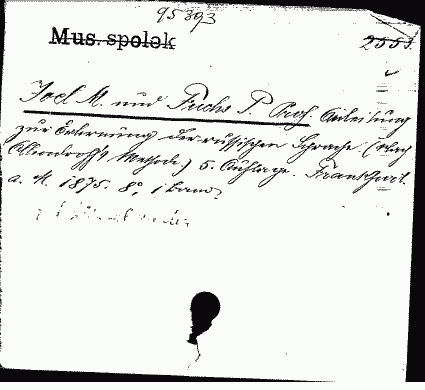 95393
Mus. spolek
2553.
Joel M. und Fuchs P. Prof. Anleitung
zur Erlernung der russischen Sprache. (Nach
Ollendorff's Methode.) 5. Auflage. Frankfurt
a. M. 1875. 8° 1 Band